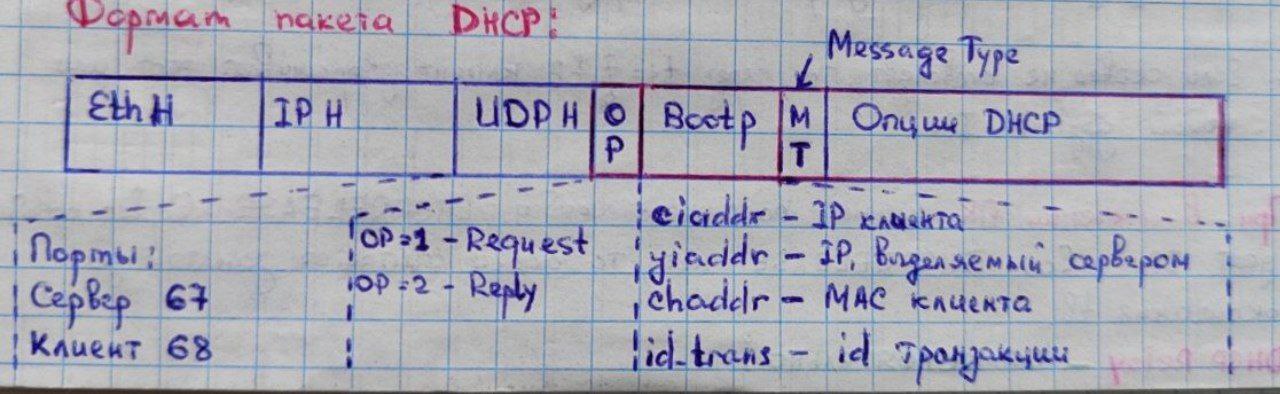 Формат пакета DHCP:
Message Type
Eth H IP H UDP H OP Bootp MT Опции DHCP
Порты:
Сервер 67
Клиент 68
OP=1 - Request
OP=2 - Reply
ciaddr - IP клиента
yiaddr - IP, выделяемый сервером
chaddr - MAC клиента
id_trans - id транзакции